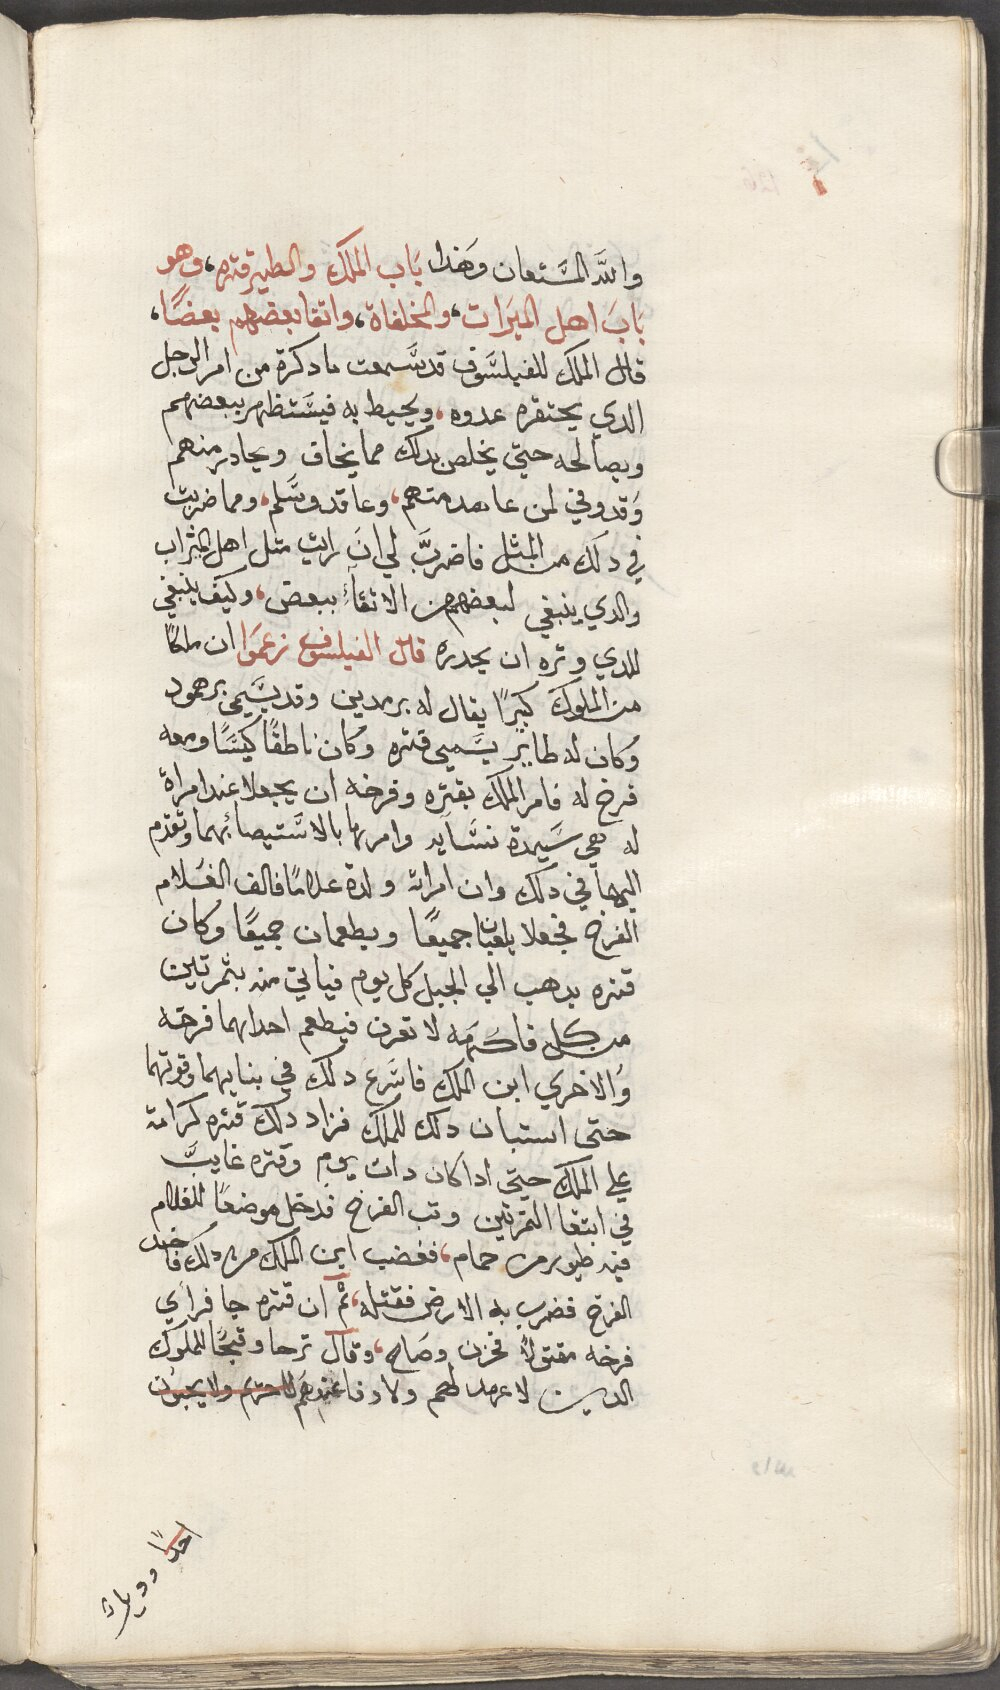 والله المستعان وهذا باب الملك والطير قتره، وهو
باب اهل الميرات، والمخلفاة، واتقا بعضهم بعضًا،
قال الملك للفيلسوف قد سمعت ما دكرة من امر الرجل
الدي يحتقره عدوه، ويحيط به فيستظهر ببعضهم
ويصالحه حتي يخلص بدلك مما يخاف ويحادر منهم
وقد وفي لمن عاهد منهم، وعاقد وسلم، ومما ضربت
في دلك من المثل فاضرب لي ان رايت متل اهل الثراب
والدي ينبغي لبعضهم من الاتقاء ببعض، وكيف ينبغي
للدي وتره ان يحدره قال الفيلسوف زعموا ان ملكًا
من الملوك كبيرًا يقال له برمدين وقد يسمي برهمود
وكان له طاير يسمي قتره وكان ناطقًا كيسًا ومعه
فرخ له فامر الملك بقتره وفرخه ان يجعلا عند امراة
له هي سيدة نسايه وامرها بالاستيصا بهما وتقدم
اليها في دلك وان امراته ولدة غلامًا فالف الغلام
الفرخ فجعلا يلعبان جميعًا ويطعمان جميعًا وكان
قتره يدهب الي الجبل كل يوم فياتي منه بثمرتين
من كل فاكهه لا تعرف فيطعم احداهما فرخه
والاخري ابن الملك فاسرع دلك في بنايهما وقوتهما
حتي استبان دلك للملك فزاد دلك قتره كرامة
علي الملك حتي ادا كان دات يوم وقتره غايب
في ابتغا الثمرتين وتب الفرخ فدخل موضعًا للغلام
فيه طيور من حمام، فغضب ابن الملك من دلك فاخد
الفرخ فضرب به الارض فقتله، ثم ان قتره جا فراي
فرخه مقتولًا فحزن وصاح، وقال ترحا وقبحًا للملوك
الدين لا عهد لهم ولا وفا عندهم لا حرم ولا يحبون
احدًا